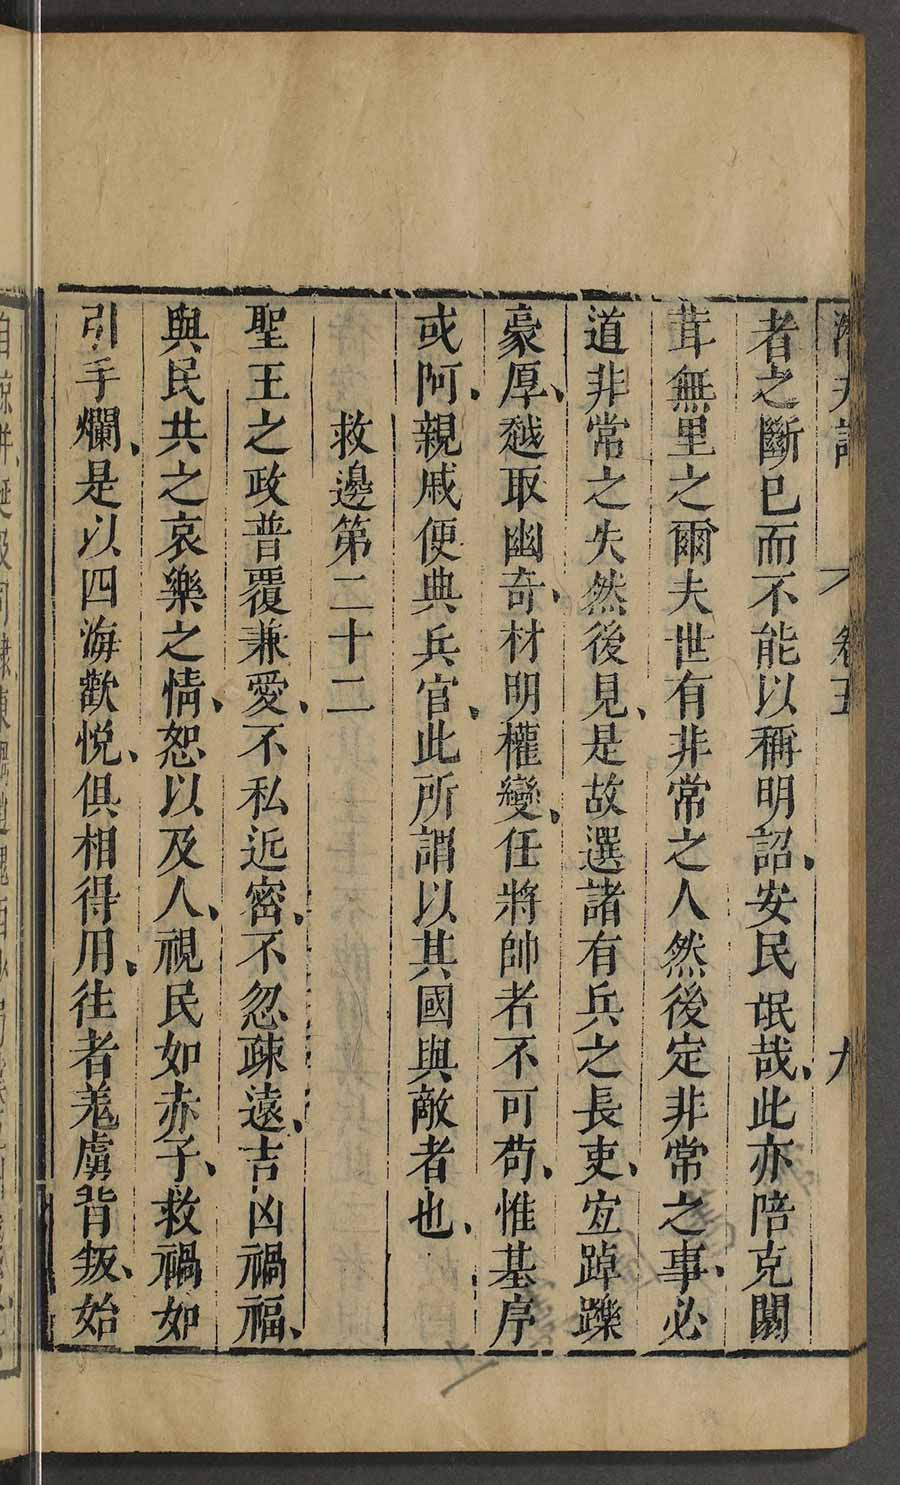 潛夫論 卷五 九
者之斷已而不能以稱明詔、安民氓哉、此亦陪克闒
茸無里之爾夫世有非常之人然後定非常之事、必
道非常之失然後見、是故選諸有兵之長吏、宜踔躒
豪厚、越取幽奇、材明權變、任將帥者不可苟、惟基序
或阿、親戚便典兵官、此所謂以其國與敵者也、
救邊第二十二
聖王之政普覆兼愛、不私近密、不忽疎遠、吉凶禍福、
與民共之哀樂之情、恕以及人、視民如赤子、救禍如
引手爛、是以四海歡悅、俱相得用、往者羗虜背叛、始